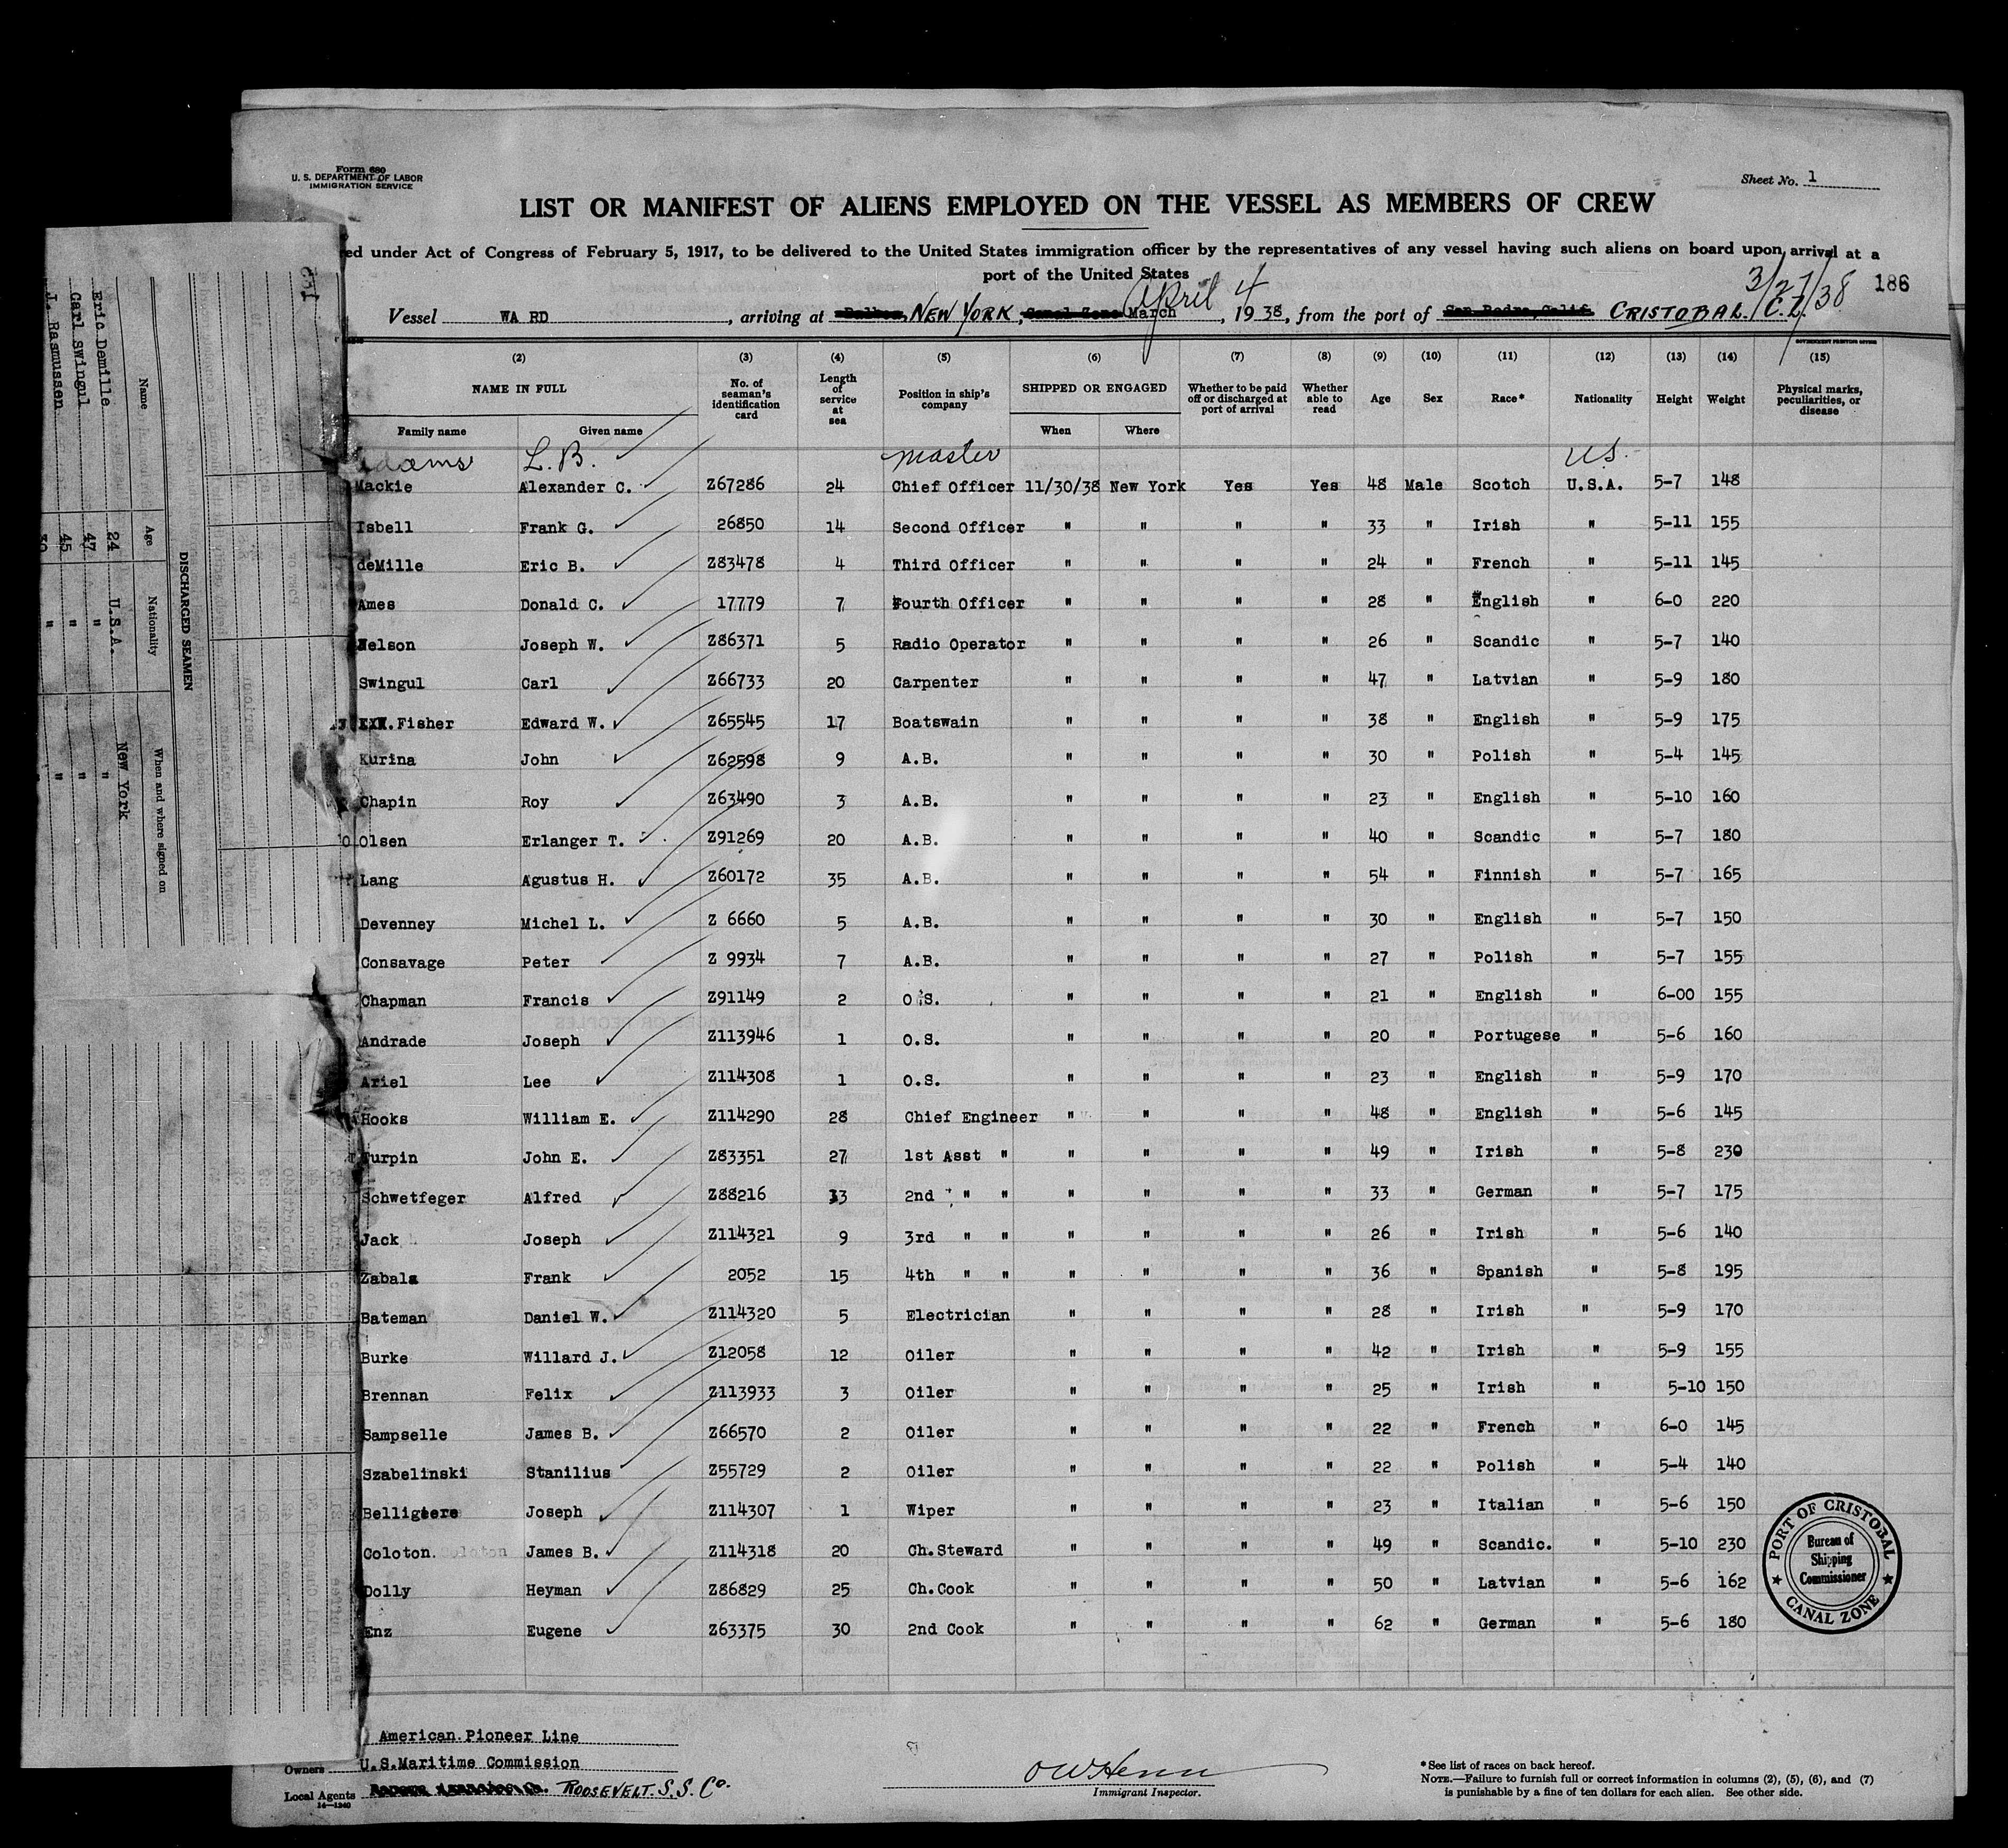 Form 680
U. S. DEPARTMENT OF LABOR
IMMIGRATION SERVICE
Sheet No. 1
LIST OR MANIFEST OF ALIENS EMPLOYED ON THE VESSEL AS MEMBERS OF CREW
ed under Act of Congress of February 5, 1917, to be delivered to the United States immigration officer by the representatives of any vessel having such aliens on board upon arrival at a
port of the United States
3/27/38 186
Vessel WARD, arriving at Balboa, NEW YORK, Canal Zone March April 4, 1938, from the port of San Pedro, Calif. CRISTOBAL. C.Z.
GOVERNMENT PRINTING OFFICE
(2) (3) (4) (5) (6) (7) (8) (9) (10) (11) (12) (13) (14) (15)
NAME IN FULL No. of seaman's identification card Length of service at sea Position in ship's company SHIPPED OR ENGAGED Whether to be paid off or discharged at port of arrival Whether able to read Age Sex Race* Nationality Height Weight Physical marks, peculiarities, or disease
Family name Given name When Where
adams L. B. master U.S.
Mackie Alexander C. Z67286 24 Chief Officer 11/30/38 New York Yes Yes 48 Male Scotch U.S.A. 5-7 148
Isbell Frank G. 26850 14 Second Officer " " " " 33 " Irish " 5-11 155
deMille Eric B. Z83478 4 Third Officer " " " " 24 " French " 5-11 145
Ames Donald C. 17779 7 Fourth Officer " " " " 28 " English " 6-0 220
Nelson Joseph W. Z86371 5 Radio Operator " " " " 26 " Scandic " 5-7 140
Swingul Carl Z66733 20 Carpenter " " " " 47 " Latvian " 5-9 180
EXW.Fisher Edward W. Z65545 17 Boatswain " " " " 38 " English " 5-9 175
Kurina John Z62598 9 A.B. " " " " 30 " Polish " 5-4 145
Chapin Roy Z63490 3 A.B. " " " " 23 " English " 5-10 160
Olsen Erlanger T. Z91269 20 A.B. " " " " 40 " Scandic " 5-7 180
Lang Agustus H. Z60172 35 A.B. " " " " 54 " Finnish " 5-7 165
Devenney Michel L. Z 6660 5 A.B. " " " " 30 " English " 5-7 150
Consavage Peter Z 9934 7 A.B. " " " " 27 " Polish " 5-7 155
Chapman Francis Z91149 2 O.S. " " " " 21 " English " 6-00 155
Andrade Joseph Z113946 1 O.S. " " " " 20 " Portugese " 5-6 160
Ariel Lee Z114308 1 O.S. " " " " 23 " English " 5-9 170
Hooks William E. Z114290 28 Chief Engineer " " " " 48 " English " 5-6 145
Turpin John E. Z83351 27 1st Asst " " " " " 49 " Irish " 5-8 230
Schwetfeger Alfred Z88216 13 2nd " " " " " " 33 " German " 5-7 175
Jack Joseph Z114321 9 3rd " " " " " " 26 " Irish " 5-6 140
Zabala Frank 2052 15 4th " " " " " " 36 " Spanish " 5-8 195
Bateman Daniel W. Z114320 5 Electrician " " " " 28 " Irish " 5-9 170
Burke Willard J. Z12058 12 Oiler " " " " 42 " Irish " 5-9 155
Brennan Felix Z113933 3 Oiler " " " " 25 " Irish " 5-10 150
Sampselle James B. Z66570 2 Oiler " " " " 22 " French " 6-0 145
Szabelinski Stanilius Z55729 2 Oiler " " " " 22 " Polish " 5-4 140
Belligeere Joseph Z114307 1 Wiper " " " " 23 " Italian " 5-6 150
Coloton. James B. Z114318 20 Ch.Steward " " " " 49 " Scandic. " 5-10 230
Dolly Heyman Z86829 25 Ch.Cook " " " " 50 " Latvian " 5-6 162
Enz Eugene Z63375 30 2nd Cook " " " " 62 " German " 5-6 180
PORT OF CRISTOBAL
Bureau of
Shipping
Commissioner
CANAL ZONE
American Pioneer Line
Owners U.S.Maritime Commission
Local Agents ROOSEVELT. S. S. Co.
14-1240
OW Henn
Immigrant Inspector.
*See list of races on back hereof.
NOTE.—Failure to furnish full or correct information in columns (2), (5), (6), and (7)
is punishable by a fine of ten dollars for each alien. See other side.
DISCHARGED SEAMEN
Name Age Nationality When and where signed on
Eric Demille 24 U.S.A. New York
Carl Swingul 47 " "
Rasmussen 45 " "